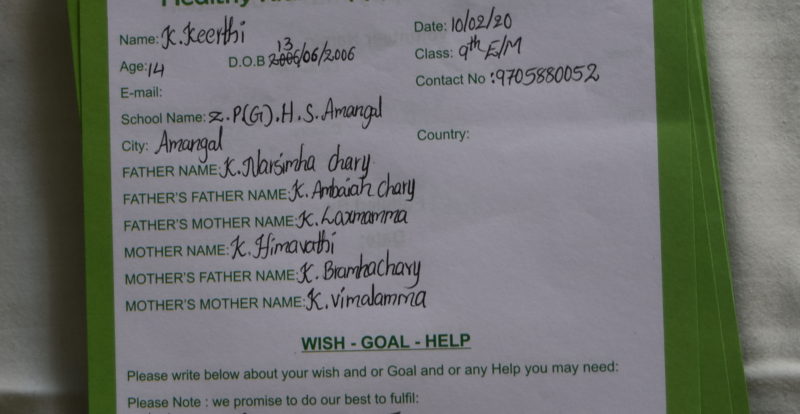 Name: K. Keerthi
Date: 10/02/20
Age: 14
D.O.B 13/06/2006
Class: 9th E/M
Contact No : 9705880052
E-mail:
School Name: Z.P(G).H.S. Amangal
City: Amangal
Country:
FATHER NAME: K. Narsimha chary
FATHER'S FATHER NAME: K. Ambaiah chary
FATHER'S MOTHER NAME: K. Laxmamma
MOTHER NAME: K. Himavathi
MOTHER'S FATHER NAME: K. Bramhachary
MOTHER'S MOTHER NAME: K. vimalamma
WISH - GOAL - HELP
Please write below about your wish and or Goal and or any Help you may need:
Please Note : we promise to do our best to fulfil: